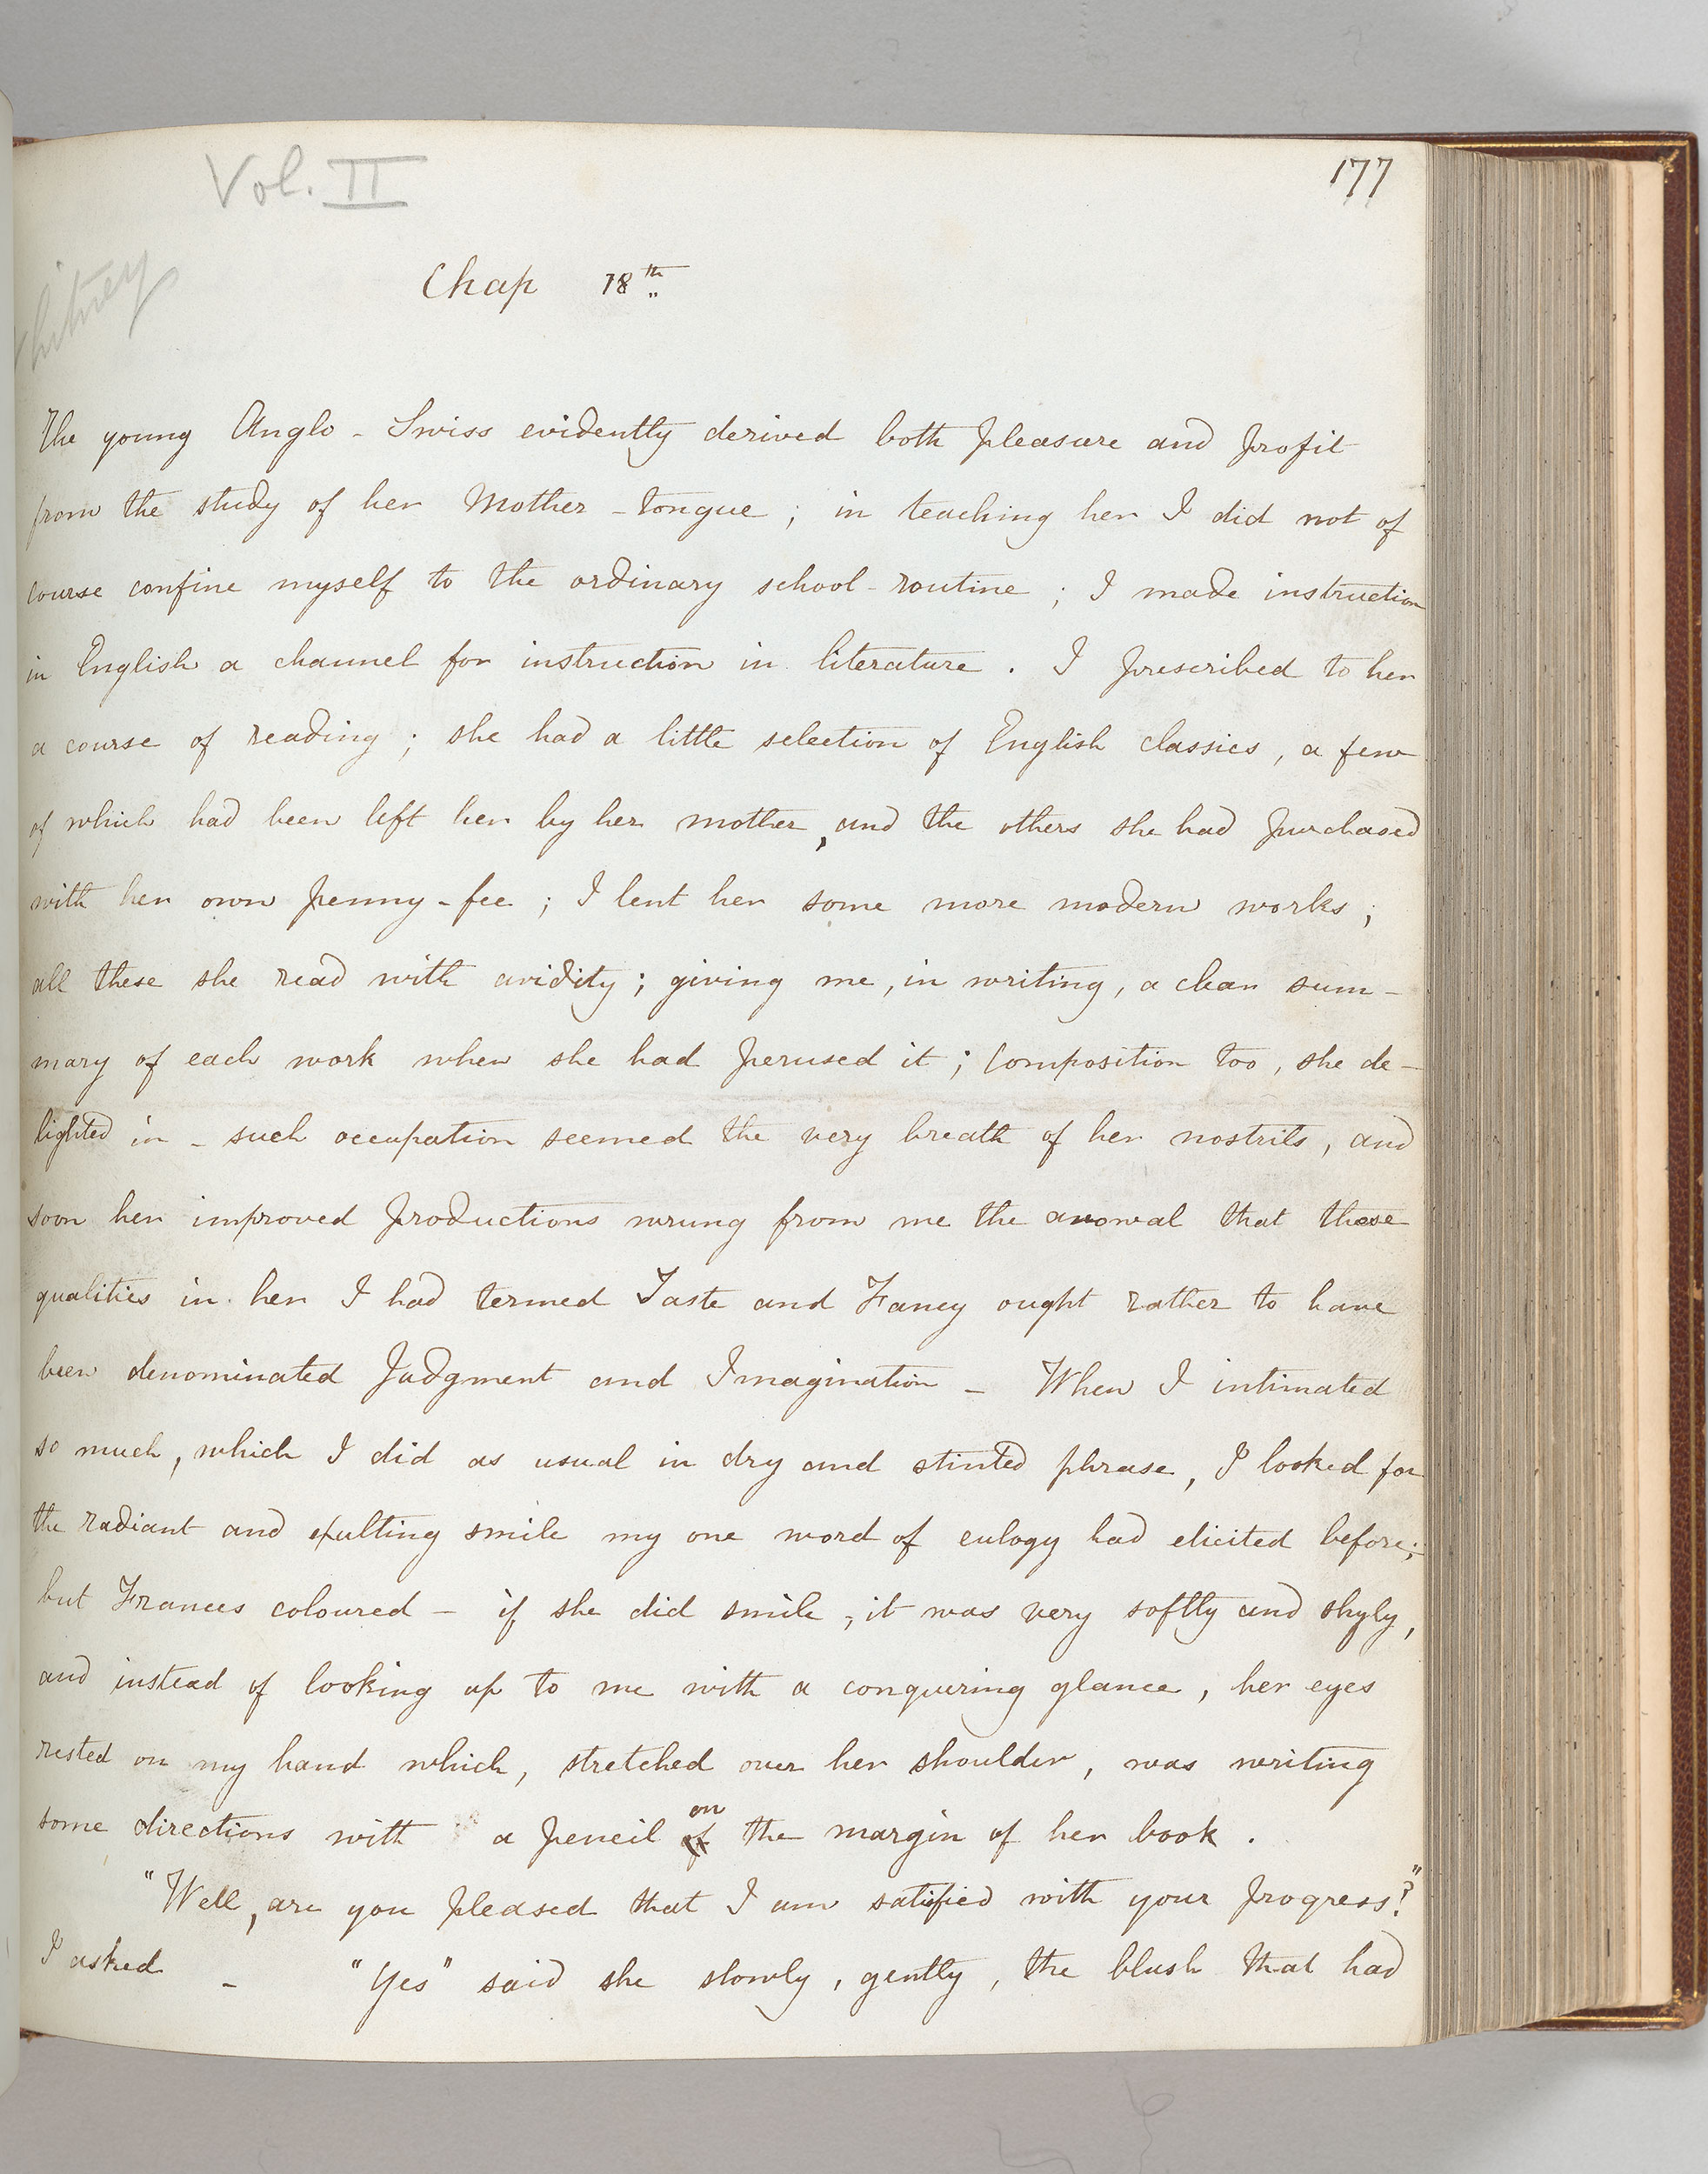 Vol. II
177
Chap 18th
The young Anglo-Swiss evidently derived both pleasure and profit
from the study of her Mother-tongue; in teaching her I did not of
course confine myself to the ordinary school-routine; I made instruction
in English a channel for instruction in literature. I prescribed to her
a course of reading; she had a little selection of English classics, a few
of which had been left her by her mother, and the others she had purchased
with her own penny-fee; I lent her some more modern works;
all these she read with avidity; giving me, in writing, a clear sum-
mary of each work when she had perused it; Composition too, she de-
lighted in - such occupation seemed the very breath of her nostrils, and
soon her improved productions wrung from me the avowal that those
qualities in her I had termed Taste and Fancy ought rather to have
been denominated Judgment and Imagination - When I intimated
so much, which I did as usual in dry and stinted phrase, I looked for
the radiant and exulting smile my one word of eulogy had elicited before;
but Frances coloured - if she did smile, it was very softly and shyly,
and instead of looking up to me with a conquering glance, her eyes
rested on my hand which, stretched over her shoulder, was writing
some directions with a pencil of on the margin of her book.
"Well, are you pleased that I am satisfied with your progress?"
I asked - "Yes" said she slowly, gently, the blush that had